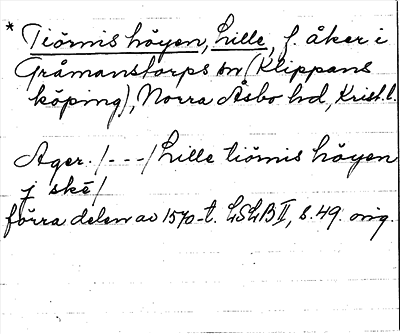 * Tiörnis höyen, Lille, f. åker i
Gråmanstorps sn (Klippans
köping), Norra Åsbo hd, Krist. l.
Ager. /---/ Lille tiörnis höyen
j ské/
förra delen av 1570-t. LSLB II, s. 49. orig.